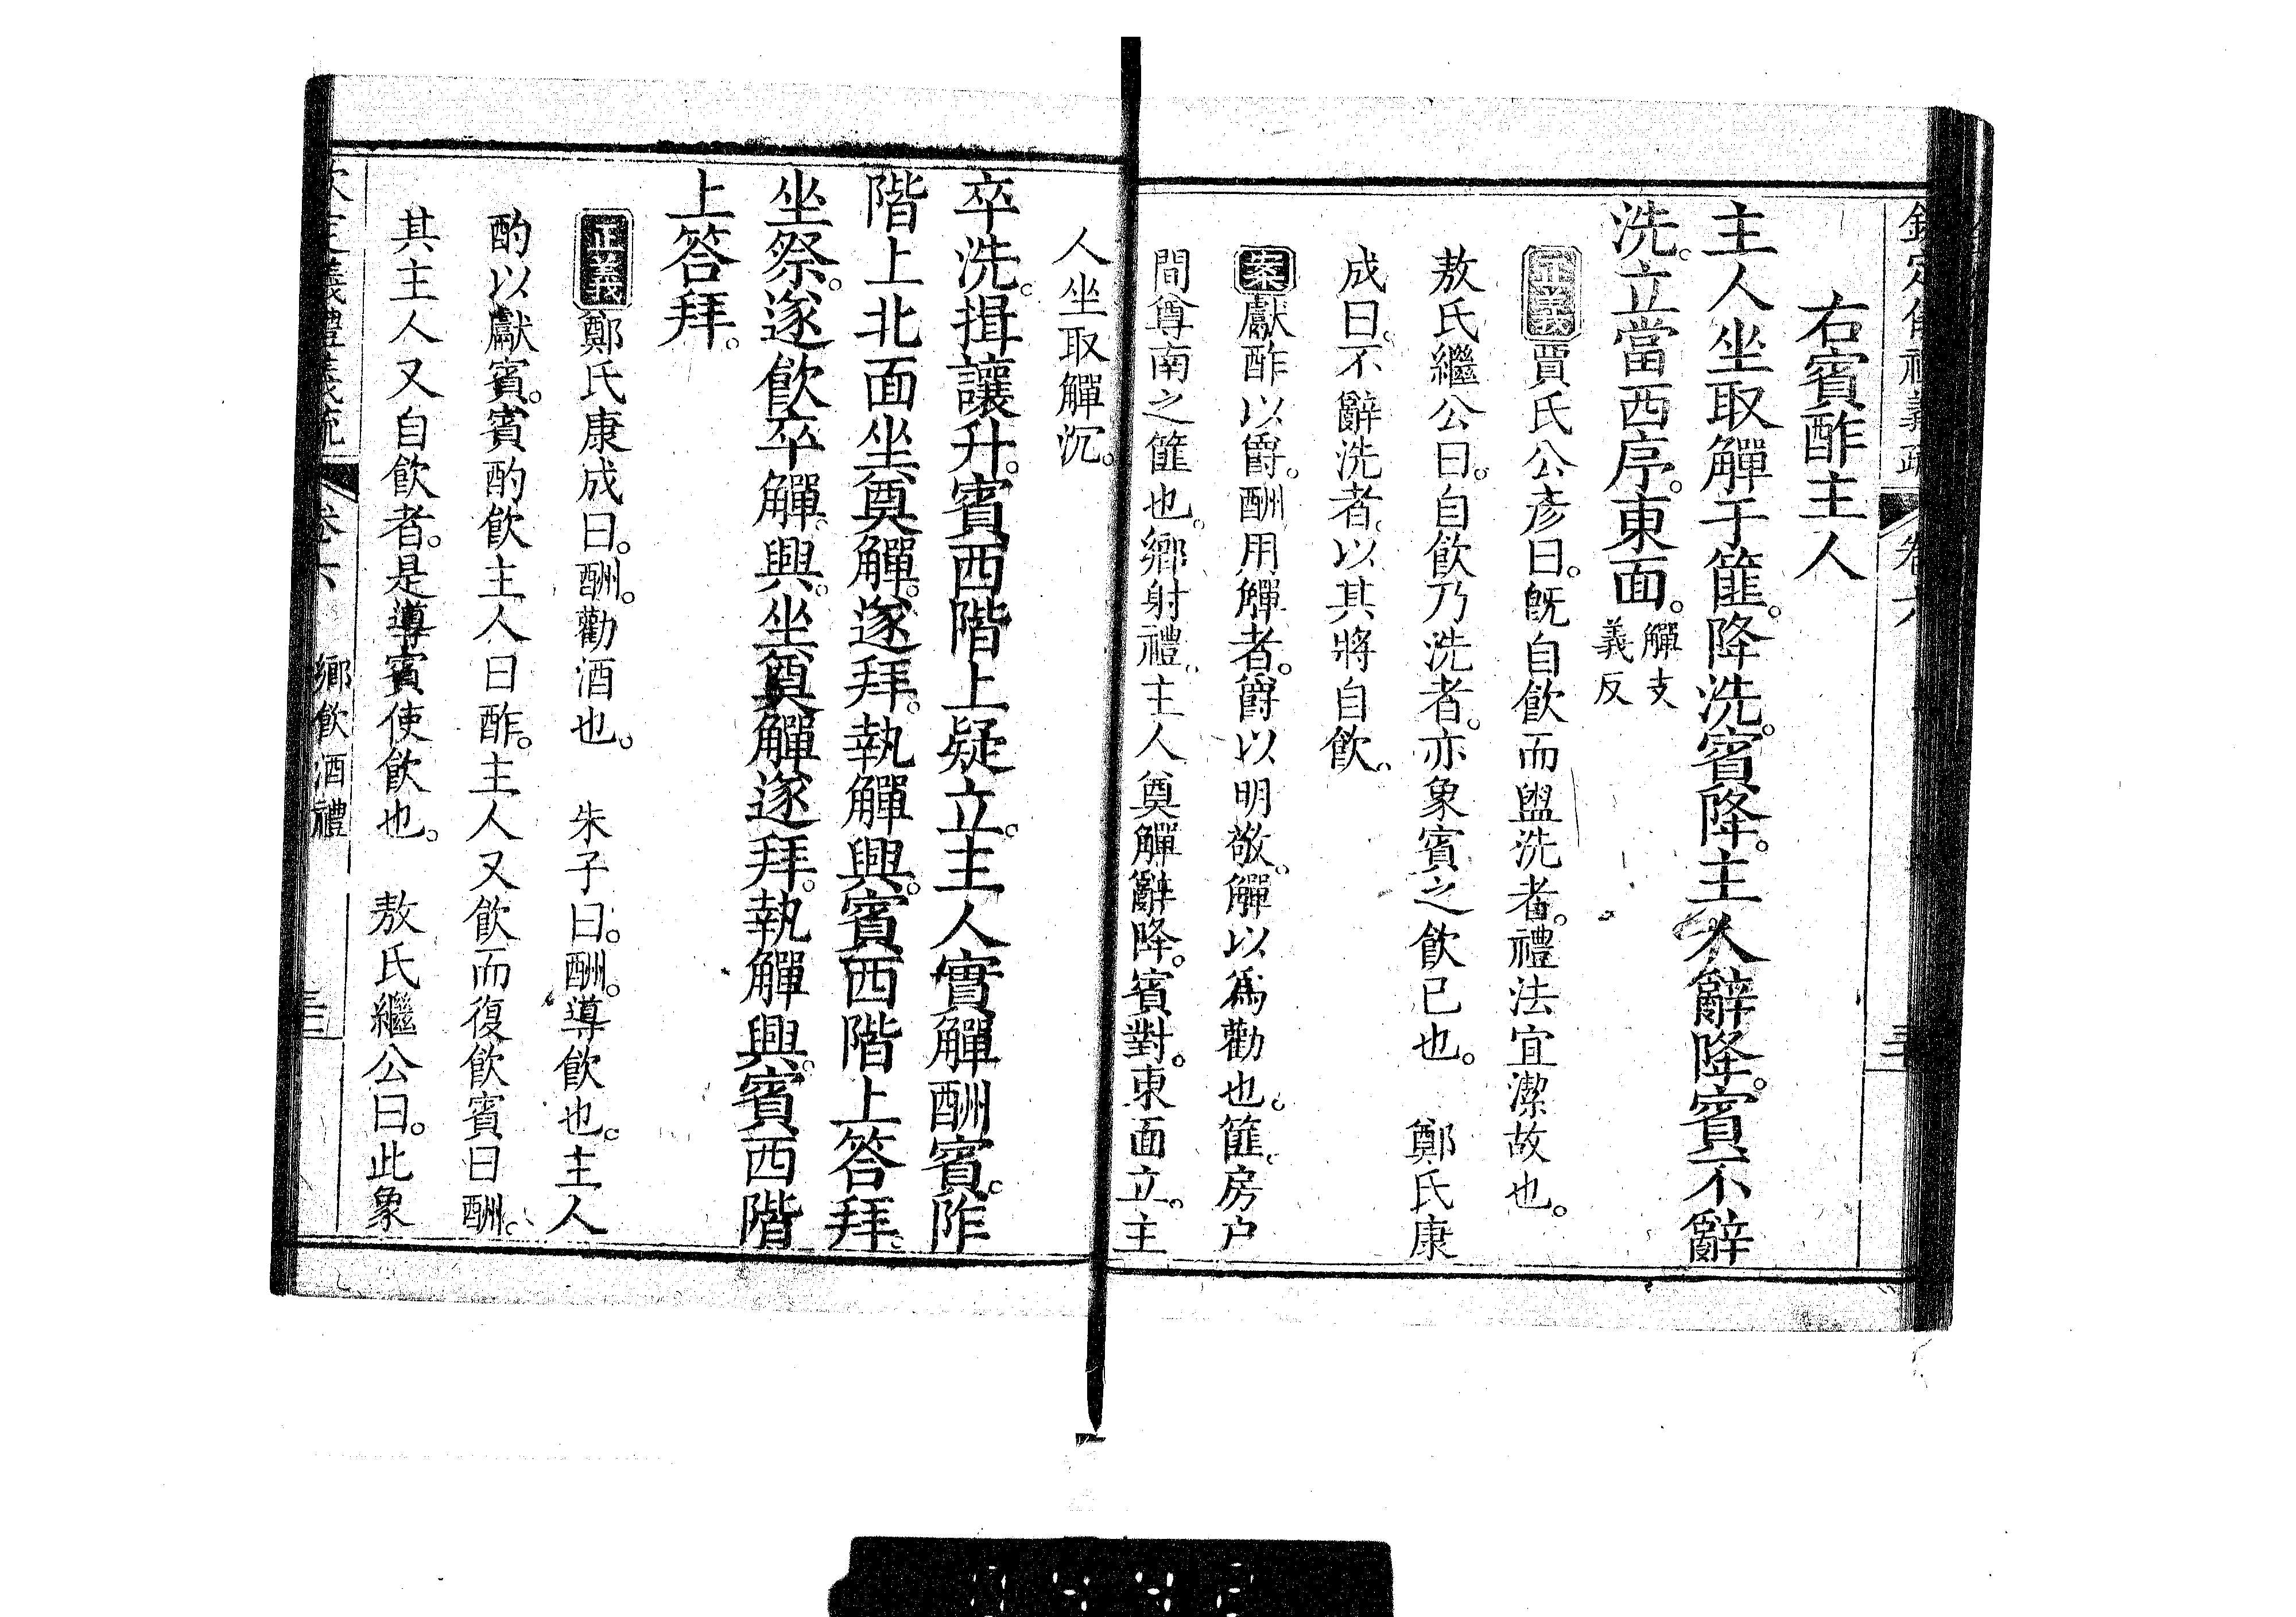 右賓酢主人
主人坐取觶于篚。降洗。賓降。主人辭降。賓不辭
洗。立當西序。東面。觶支義反
正義賈氏公彥曰。旣自飲而盥洗者。禮法宜潔故也。
敖氏繼公曰。自飲乃洗者。亦象賓之飲已也。 鄭氏康
成曰。不辭洗者。以其將自飲。
案獻酢以爵。酬用觶者。爵以明敬。觶以爲勸也。篚。房户
間尊南之篚也。鄉射禮。主人奠觶辭降。賓對。東面立。主
人坐取觶洗。
卒洗。揖讓升。賓西階上疑立。主人實觶酬賓。阼
階上北面坐奠觶。遂拜。執觶興。賓西階上答拜。
坐祭。遂飲。卒觶。興。坐奠觶。遂拜。執觶興。賓西階
上答拜。
正義鄭氏康成曰。酬。勸酒也。 朱子曰。酬。導飲也。主人
酌以獻賓。賓酌飲主人曰酢。主人又飲而復飲賓曰酬。
其主人又自飲者。是導賓使飲也。 敖氏繼公曰。此象
卷六 鄉飲酒禮